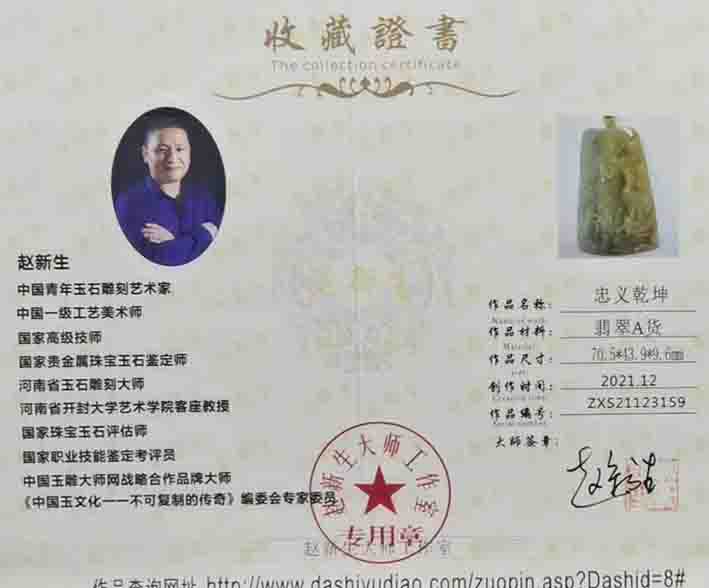 收藏證書
The collection certificate
赵新生
中国青年玉石雕刻艺术家
中国一级工艺美术师
国家高级技师
国家贵金属珠宝玉石鉴定师
河南省玉石雕刻大师
河南省开封大学艺术学院客座教授
国家珠宝玉石评估师
国家职业技能鉴定考评员
中国玉雕大师网战略合作品牌大师
《中国玉文化——不可复制的传奇》编委会专家委员
作品名称: 忠义乾坤
Name of work:
作品材料: 翡翠A货
Material:
作品尺寸: 70.5*43.9*9.6mm
创作时间: 2021.12
作品编号: ZXS21123159
Serial number:
大师签章:
赵新生
赵新生大师工作室
专用章
赵新生大师工作室
作品查询网址 http://www.dashiyudiao.com/zuopin.asp?Dashid=8#